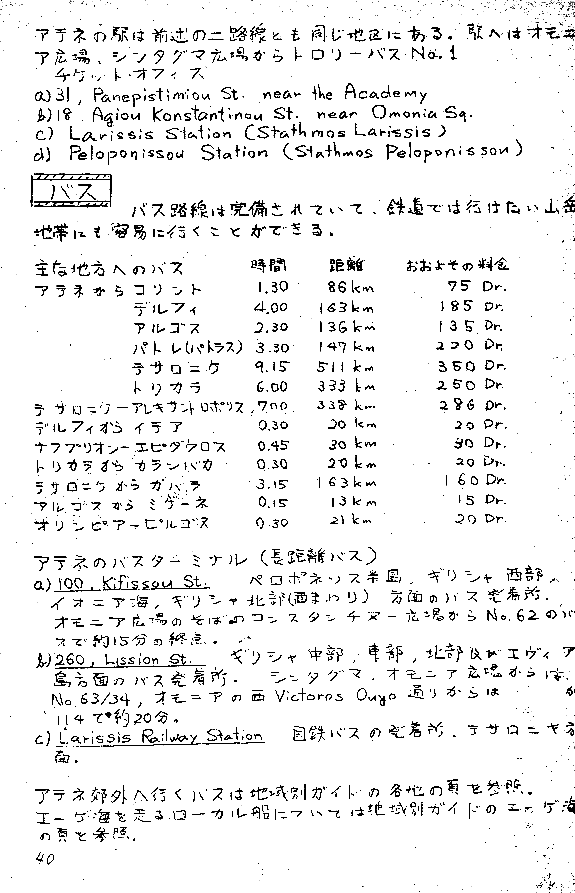 アテネの駅は前述の二路線とも同じ地区にある。駅へはオモニ
ア広場、シンタグマ広場からトロリーバス No.1
チケットオフィス
a) 31, Panepistimiou St. near the Academy
b) 18 Agiou Konstantinou St. near Omonia Sq.
c) Larissis Station (Stathmos Larissis)
d) Peloponissou Station (Stathmos Peloponissou)
バス
バス路線は完備されていて、鉄道では行けない山岳
地帯にも容易に行くことができる。
主な地方へのバス 時間 距離 おおよその料金
アテネから コリント 1.30 86km 75 Dr.
デルフィ 4.00 163km 185 Dr.
アルゴス 2.30 136km 135 Dr.
パトレ(パトラス) 3.30 147km 220 Dr.
テサロニケ 9.15 511km 350 Dr.
トリカラ 6.00 333km 250 Dr.
テサロニケーアレキサンドロポリス 7.00 338km 286 Dr.
デルフィから イテア 0.30 20km 20 Dr.
ナフプリオンーエピダウロス 0.45 30km 30 Dr.
トリカラから カランバカ 0.30 20km 20 Dr.
テサロニケから カバラ 3.15 163km 160 Dr.
アルゴスから ミケーネ 0.15 13km 15 Dr.
オリンピアーピルゴス 0.30 21km 20 Dr.
アテネのバスターミナル (長距離バス)
a) 100, Kifissou St. ペロポネソス半島、ギリシャ西部、
イオニア海、ギリシャ北部(西まわり) 方面のバス発着所。
オモニア広場のそばのコンスタンチヌー広場から No.62 のバ
スで約15分の終点。
b) 260, Lission St. ギリシャ中部、東部、北部及びエヴィア
島方面のバス発着所。 シンタグマ、オモニア広場からは、
No.63/34, オモニアの西 Victoros Ougo 通りからは
114で約20分。
c) Larissis Railway Station 国鉄バスの発着所、テサロニキ方
面。
アテネ郊外へ行くバスは地域別ガイドの各地の頁を参照。
エーゲ海を走るローカル船については地域別ガイドのエーゲ海
の頁を参照。
40